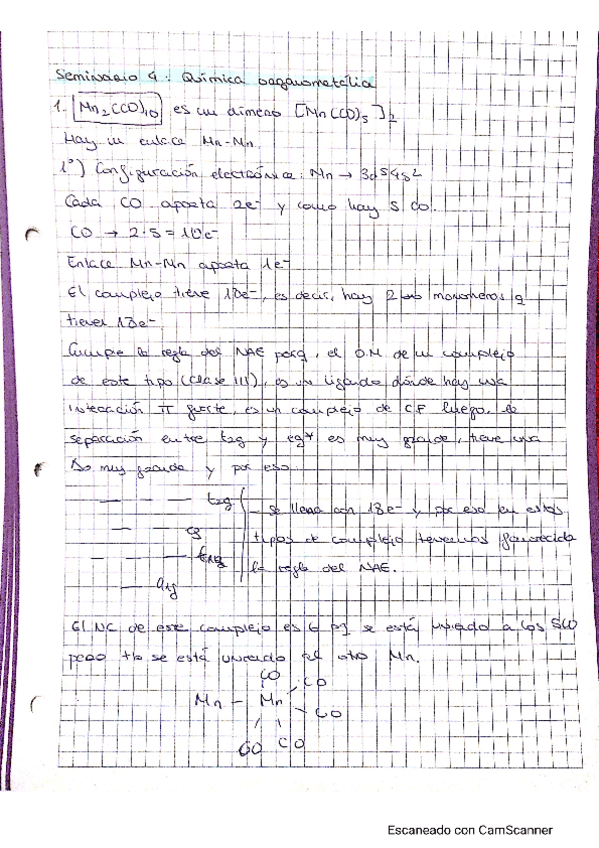 Seminario 4: Química organometálica
1. Mn₂(CO)₁₀ es un dímero [Mn(CO)₅]₂
Hay un enlace Mn-Mn.
1º) Configuración electrónica: Mn → 3d⁵4s²
Cada CO aporta 2e⁻ y como hay 5 CO.
CO → 2·5 = 10e⁻
Enlace Mn-Mn aporta 1e⁻
El complejo tiene 18e⁻, es decir, hay 2 monómeros q
tienen 18e⁻.
Cumple la regla del NAE porq, el O.M de un complejo
de este tipo (clase III), es un ligando dónde hay una
interacción π fuerte, es un complejo de CF luego, la
separación entre t2g y eg* es muy grande, tiene una
Δo muy grande y por eso
t2g
eg
a1g
- se llena con 18e⁻ y por eso en estos
tipos de complejo tenemos favorecida
la regla del NAE.
El NC de este complejo es 6 pq se está uniendo a los 5CO
pero tb se está uniendo al otro Mn.
CO
CO
Mn - Mn
CO
CO CO
Escaneado con CamScanner